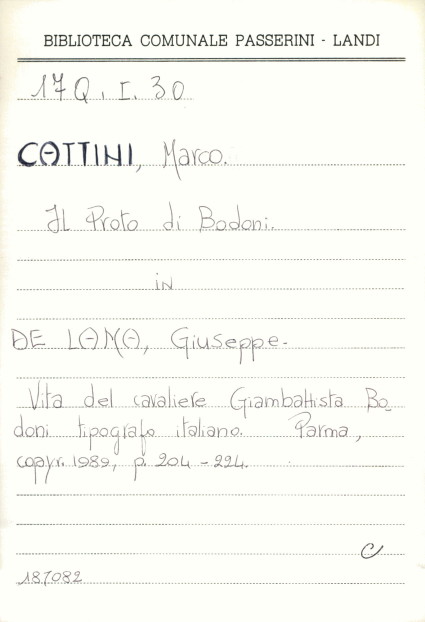 BIBLIOTECA COMUNALE PASSERINI - LANDI
17Q. I. 30
CATTINI, Marco.
Il Proto di Bodoni.
in
DE LAMA, Giuseppe-
Vita del cavaliere Giambattista Bo_
doni tipografo italiano. Parma,
copyr. 1989, p. 204-224.
C
187082